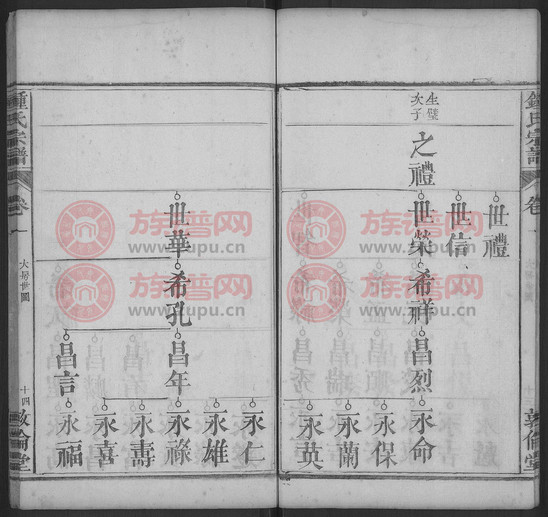 鍾氏宗譜
卷一
大房世圖
敦倫堂
世禮
世信
生璧次子
之禮
世榮
希祥
昌烈
永命
永保
永蘭
永英
世華
希孔
昌年
永仁
永雄
永祿
永壽
永喜
昌言
永福
鍾氏宗譜
卷一
大房世圖
十四
敦倫堂
族譜网
www.zupu.cn
族譜网
www.zupu.cn
族譜网
www.zupu.cn
族譜网
www.zupu.cn